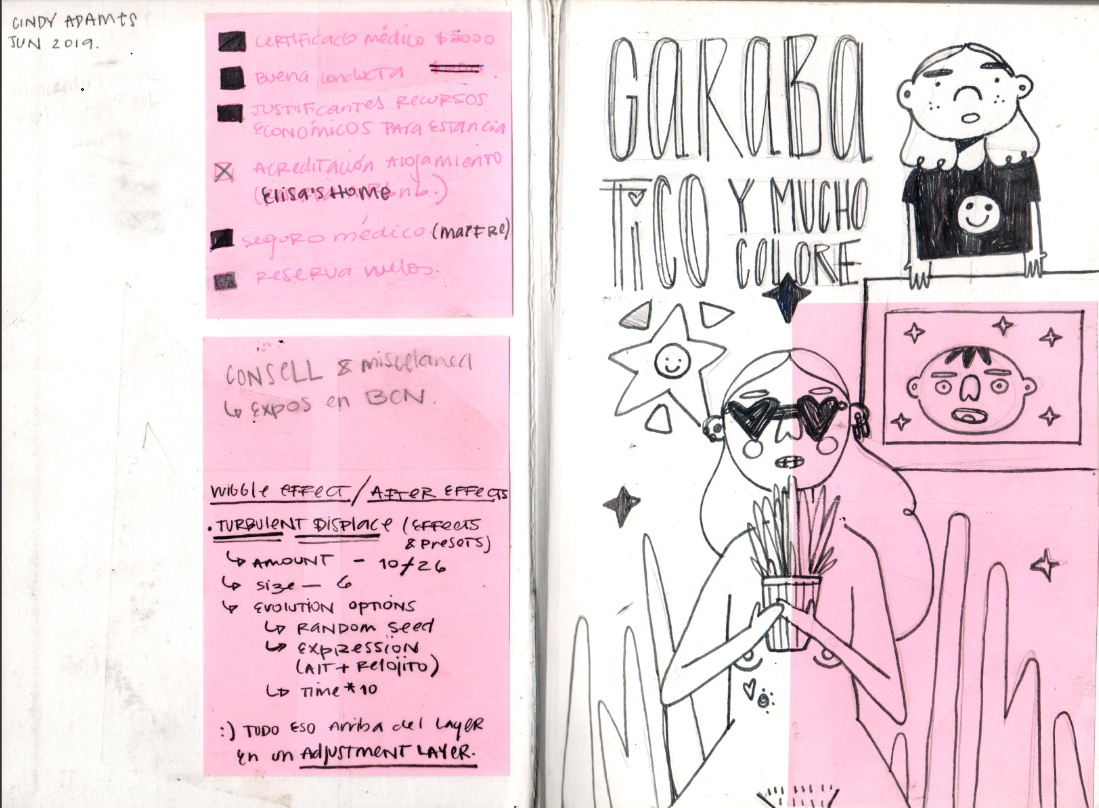 CINDY ADAMES
JUN 2019.
CERTIFICADO médico $3000
Buena conducta
JUSTIFICANTES RECURSOS
ECONÓMICOS PARA ESTANCIA
ACREDITACIÓN ALOJAMIENTO
Elisa's Home
SEGURO médico (MAPFRE)
RESERVA vuelos.
CONSELL & miscelanea
↳ EXPOS en BCN.
WIGGLE EFFECT/AFTER EFFECTS
• TURBULENT DISPLACE (EFFECTS
& PRESETS)
↳ AMOUNT - 10/26
↳ Size - 6
↳ EVOLUTION OPTIONS
↳ RANDOM SEED
↳ EXPRESSION
(AlT + RELOJITO)
↳ Time * 10
:) TODO ESO Arriba del LAYER
en un ADJUSTMENT LAYER.
GARABA
TICO Y MUCHO
COLORE